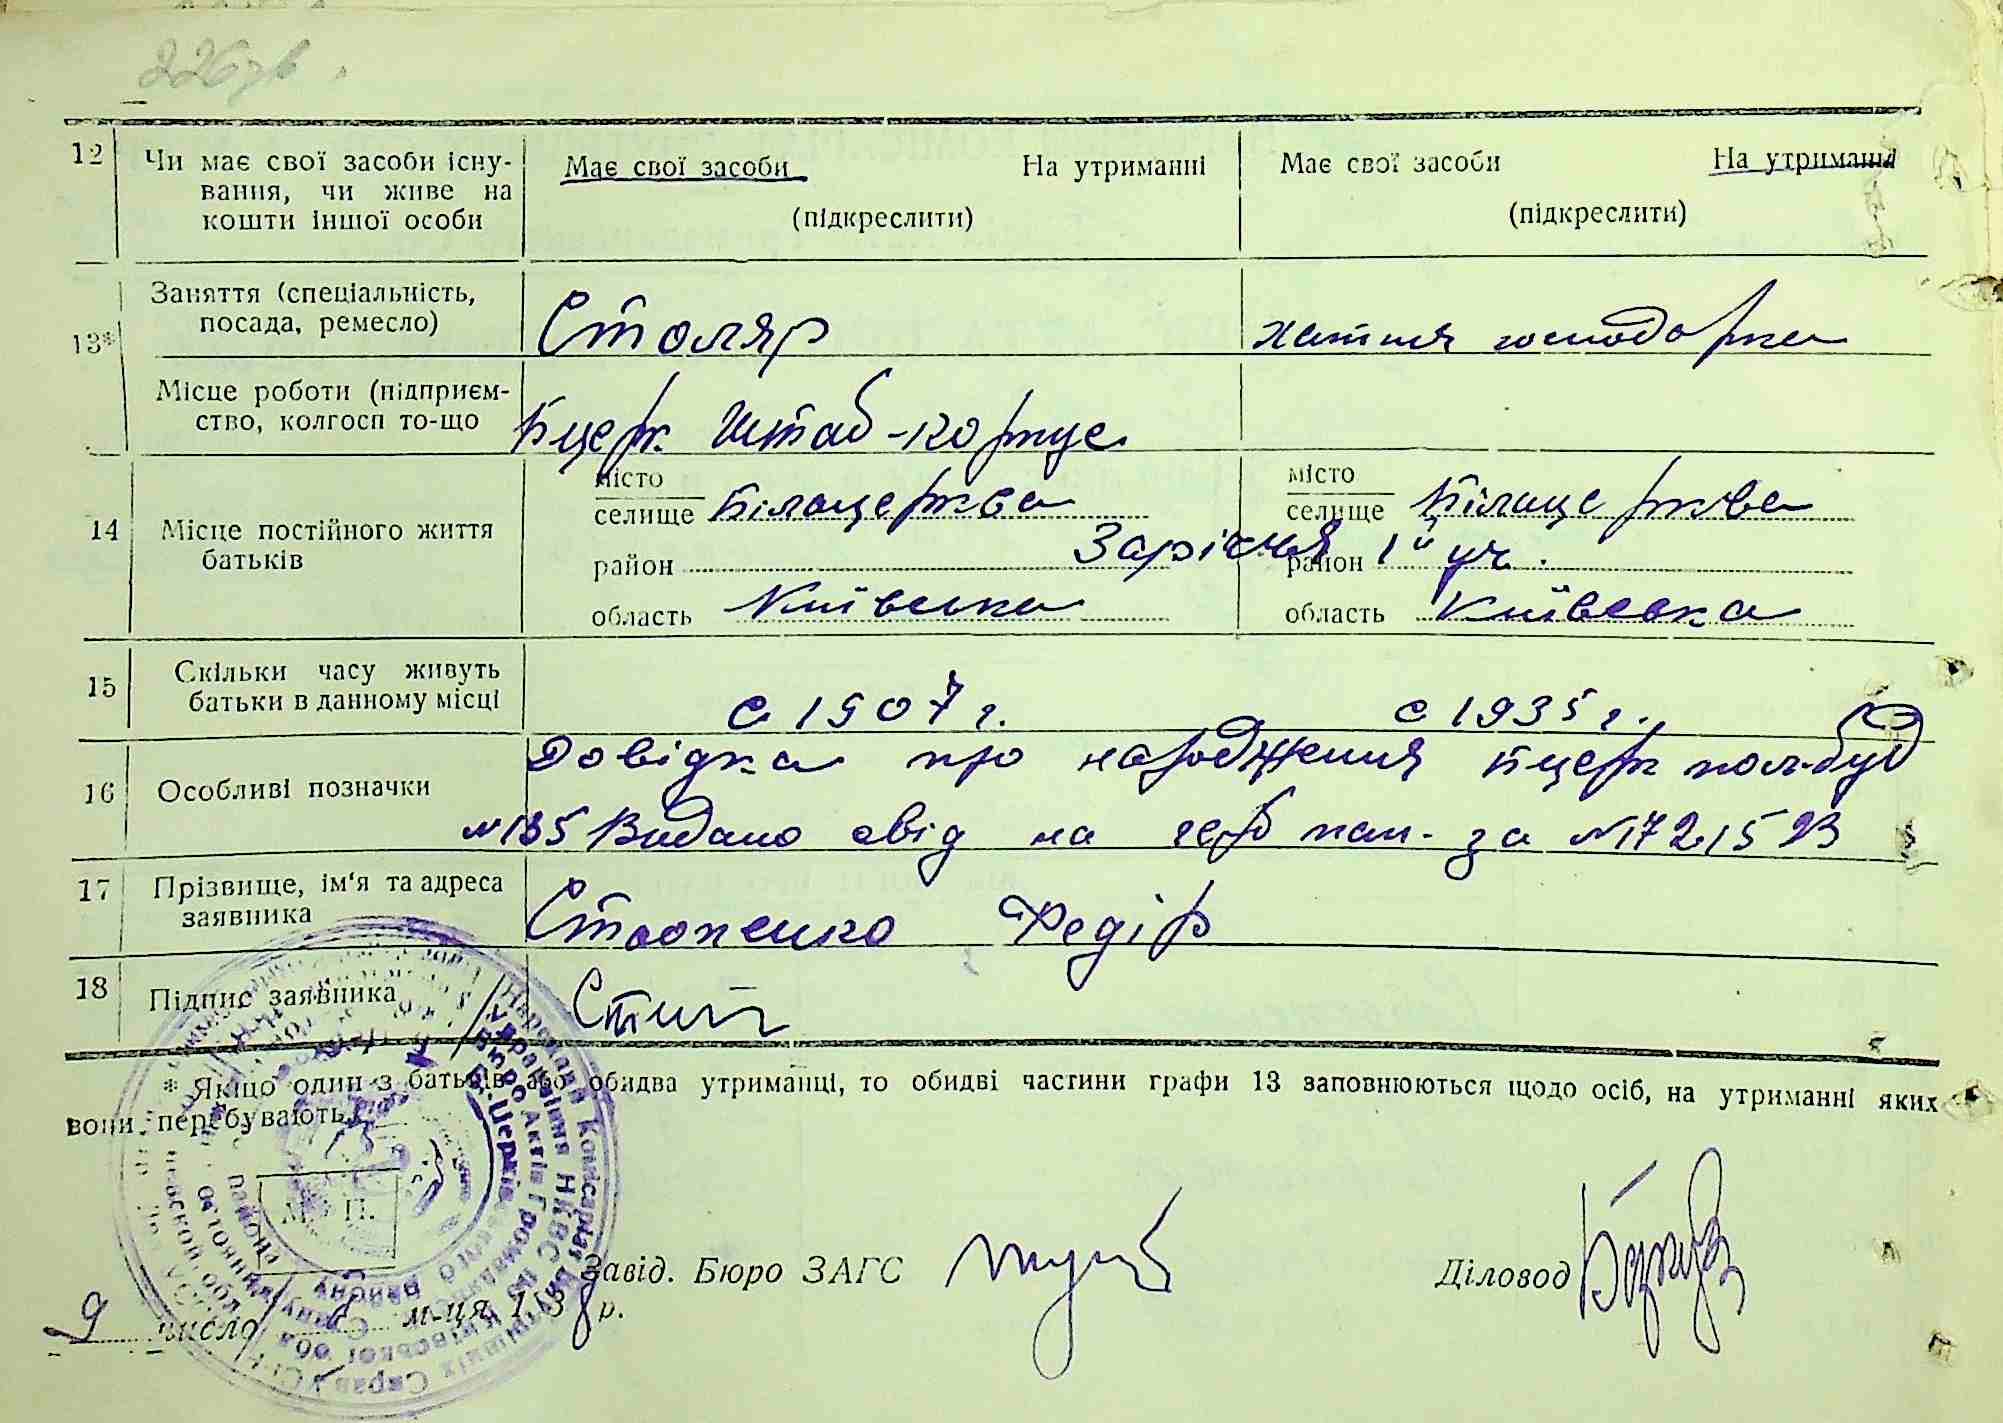 226зв.
12 Чи має свої засоби існу- Має свої засоби На утриманні Має свої засоби На утриманні
вання, чи живе на
кошти іншої особи (підкреслити) (підкреслити)
13* Заняття (спеціальність, Столяр хатня господарка
посада, ремесло)
Місце роботи (підприєм- Бцерк Штаб-корпус
ство, колгосп то-що
14 Місце постійного життя місто місто
батьків селище Білацерква селище Білацерква
район Зарічня район 1й уч.
область Київська область Київська
15 Скільки часу живуть с 1907 г. с 1935 г.
батьки в данному місці
16 Особливі позначки Довідка про народження Бцерк пол-буд
№135 Видано свід на герб пап. за №172152
17 Прізвище, ім'я та адреса Федір
заявника
18 Підпис заявника
* Якщо один з батьків або обидва утриманці, то обидві частини графи 13 заповнюються щодо осіб, на утриманні яких
вони перебувають.
Народний Комісаріат Внутрішніх Справ УСРР
Управління НКВС по Київської обл.
Бюро Актів Громадянського Стану
Б.Церківського району
М. П.
Завід. Бюро ЗАГС Діловод
9 число м-ця 193 р.